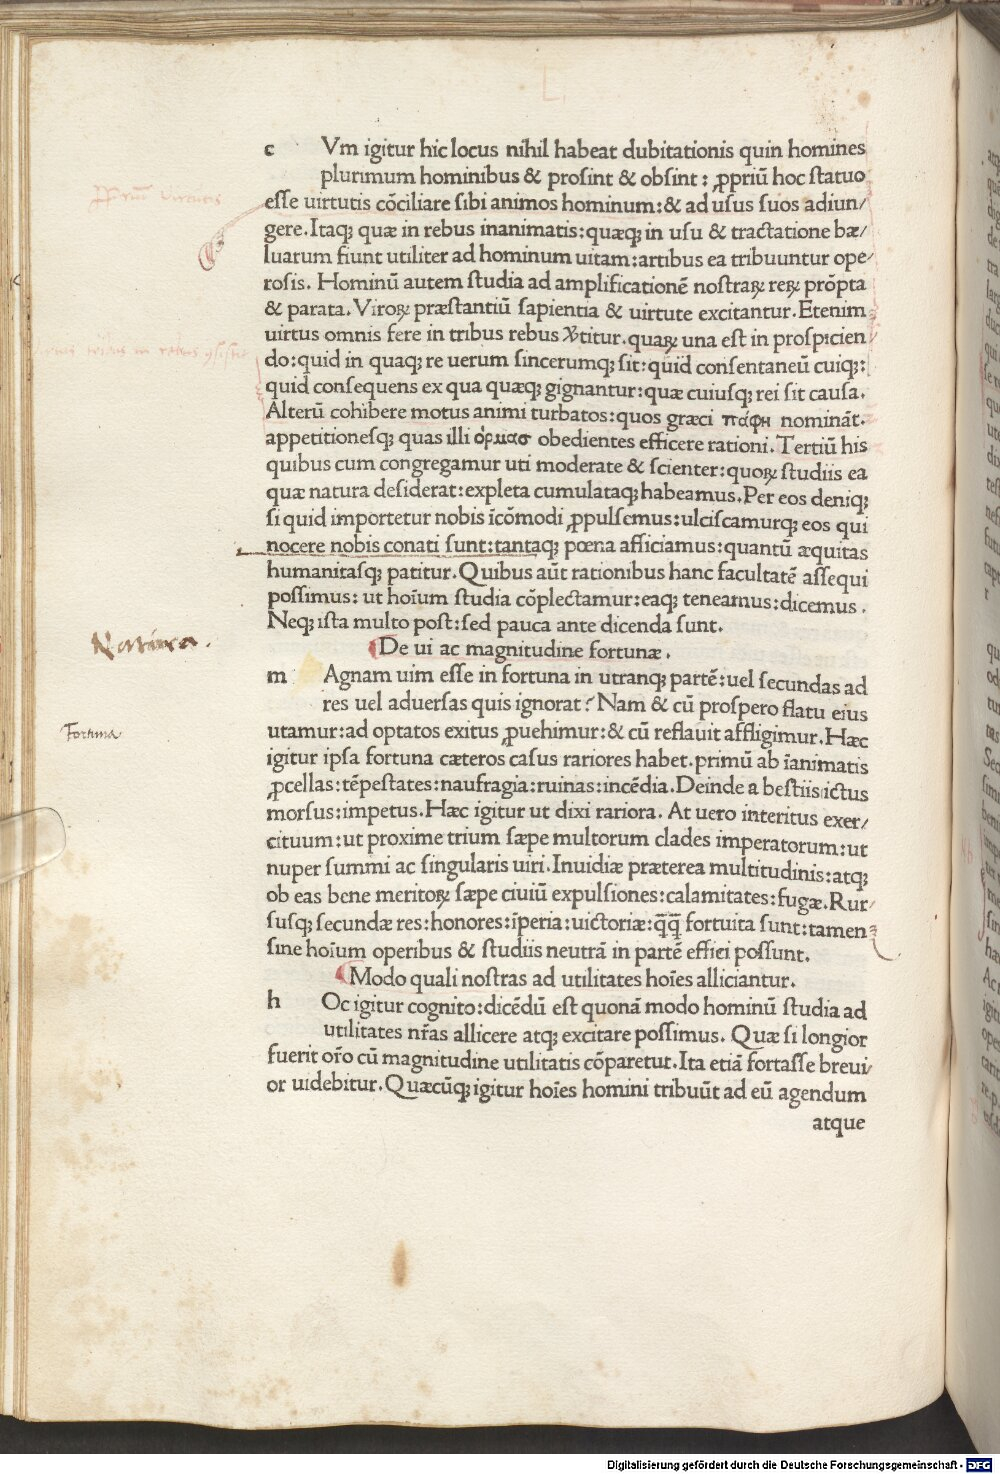 L
c Vm igitur hic locus nihil habeat dubitationis quin homines
plurimum hominibus & prosint & obsint: ꝓpriū hoc statuo
esse uirtutis cōciliare sibi animos hominum:& ad usus suos adiun/
gere.Itaqꝫ quæ in rebus inanimatis:quæqꝫ in usu & tractatione bæ/
luarum fiunt utiliter ad hominum uitam:artibus ea tribuuntur ope/
rosis. Hominū autem studia ad amplificationē nostraꝝ reꝝ prōpta
& parata. Viroꝝ præstantiū sapientia & uirtute excitantur.Etenim
uirtus omnis fere in tribus rebus titur.quaꝝ una est in prospicien
do:quid in quaqꝫ re uerum sincerumqꝫ sit:quid consentaneū cuiqꝫ:
quid consequens ex qua quæqꝫ gignantur:quæ cuiusqꝫ rei sit causa.
Alterū cohibere motus animi turbatos:quos græci πάφη nomināt.
appetitionesqꝫ quas illi ὁρμασ obedientes efficere rationi.Tertiū his
quibus cum congregamur uti moderate & scienter:quoꝝ studiis ea
quæ natura desiderat:expleta cumulataqꝫ habeamus.Per eos deniqꝫ
si quid importetur nobis īcōmodi ꝓpulsemus:ulciscamurqꝫ eos qui
nocere nobis conati sunt:tantaqꝫ pœna afficiamus:quantū æquitas
humanitasqꝫ patitur.Quibus aūt rationibus hanc facultatē assequi
possimus: ut hoīum studia cōplectamur:eaqꝫ teneamus:dicemus.
Neqꝫ ista multo post:sed pauca ante dicenda sunt.
De ui ac magnitudine fortunæ.
m Agnam uim esse in fortuna in utranqꝫ partē:uel secundas ad
res uel aduersas quis ignorat? Nam & cū prospero flatu eius
Fortuna
utamur:ad optatos exitus ꝓuehimur:& cū reflauit affligimur.Hæc
igitur ipsa fortuna cæteros casus rariores habet.primū ab īanimatis
ꝓcellas:tēpestates:naufragia:ruinas:incēdia.Deinde a bestiis ictus
morsus:impetus.Hæc igitur ut dixi rariora. At uero interitus exer/
cituum:ut proxime trium sæpe multorum clades imperatorum:ut
nuper summi ac singularis uiri.Inuidiæ præterea multitudinis:atqꝫ
ob eas bene meritoꝝ sæpe ciuiū expulsiones:calamitates:fugæ.Rur/
susqꝫ secundæ res:honores:īperia:uictoriæ:q̄q̄ fortuita sunt:tamen
sine hoīum operibus & studiis neutrā in partē effici possunt.
Modo quali nostras ad utilitates hoīes alliciantur.
h Oc igitur cognito:dicēdū est quonā modo hominū studia ad
utilitates nr̄as allicere atqꝫ excitare possimus. Quæ si longior
fuerit or̄o cū magnitudine utilitatis cōparetut.Ita etiā fortasse breui/
or uidebitur.Quæcūqꝫ igitur hoīes homini tribuūt ad eū agendum
atque
Digitalisierung gefördert durch die Deutsche Forschungsgemeinschaft - DFG